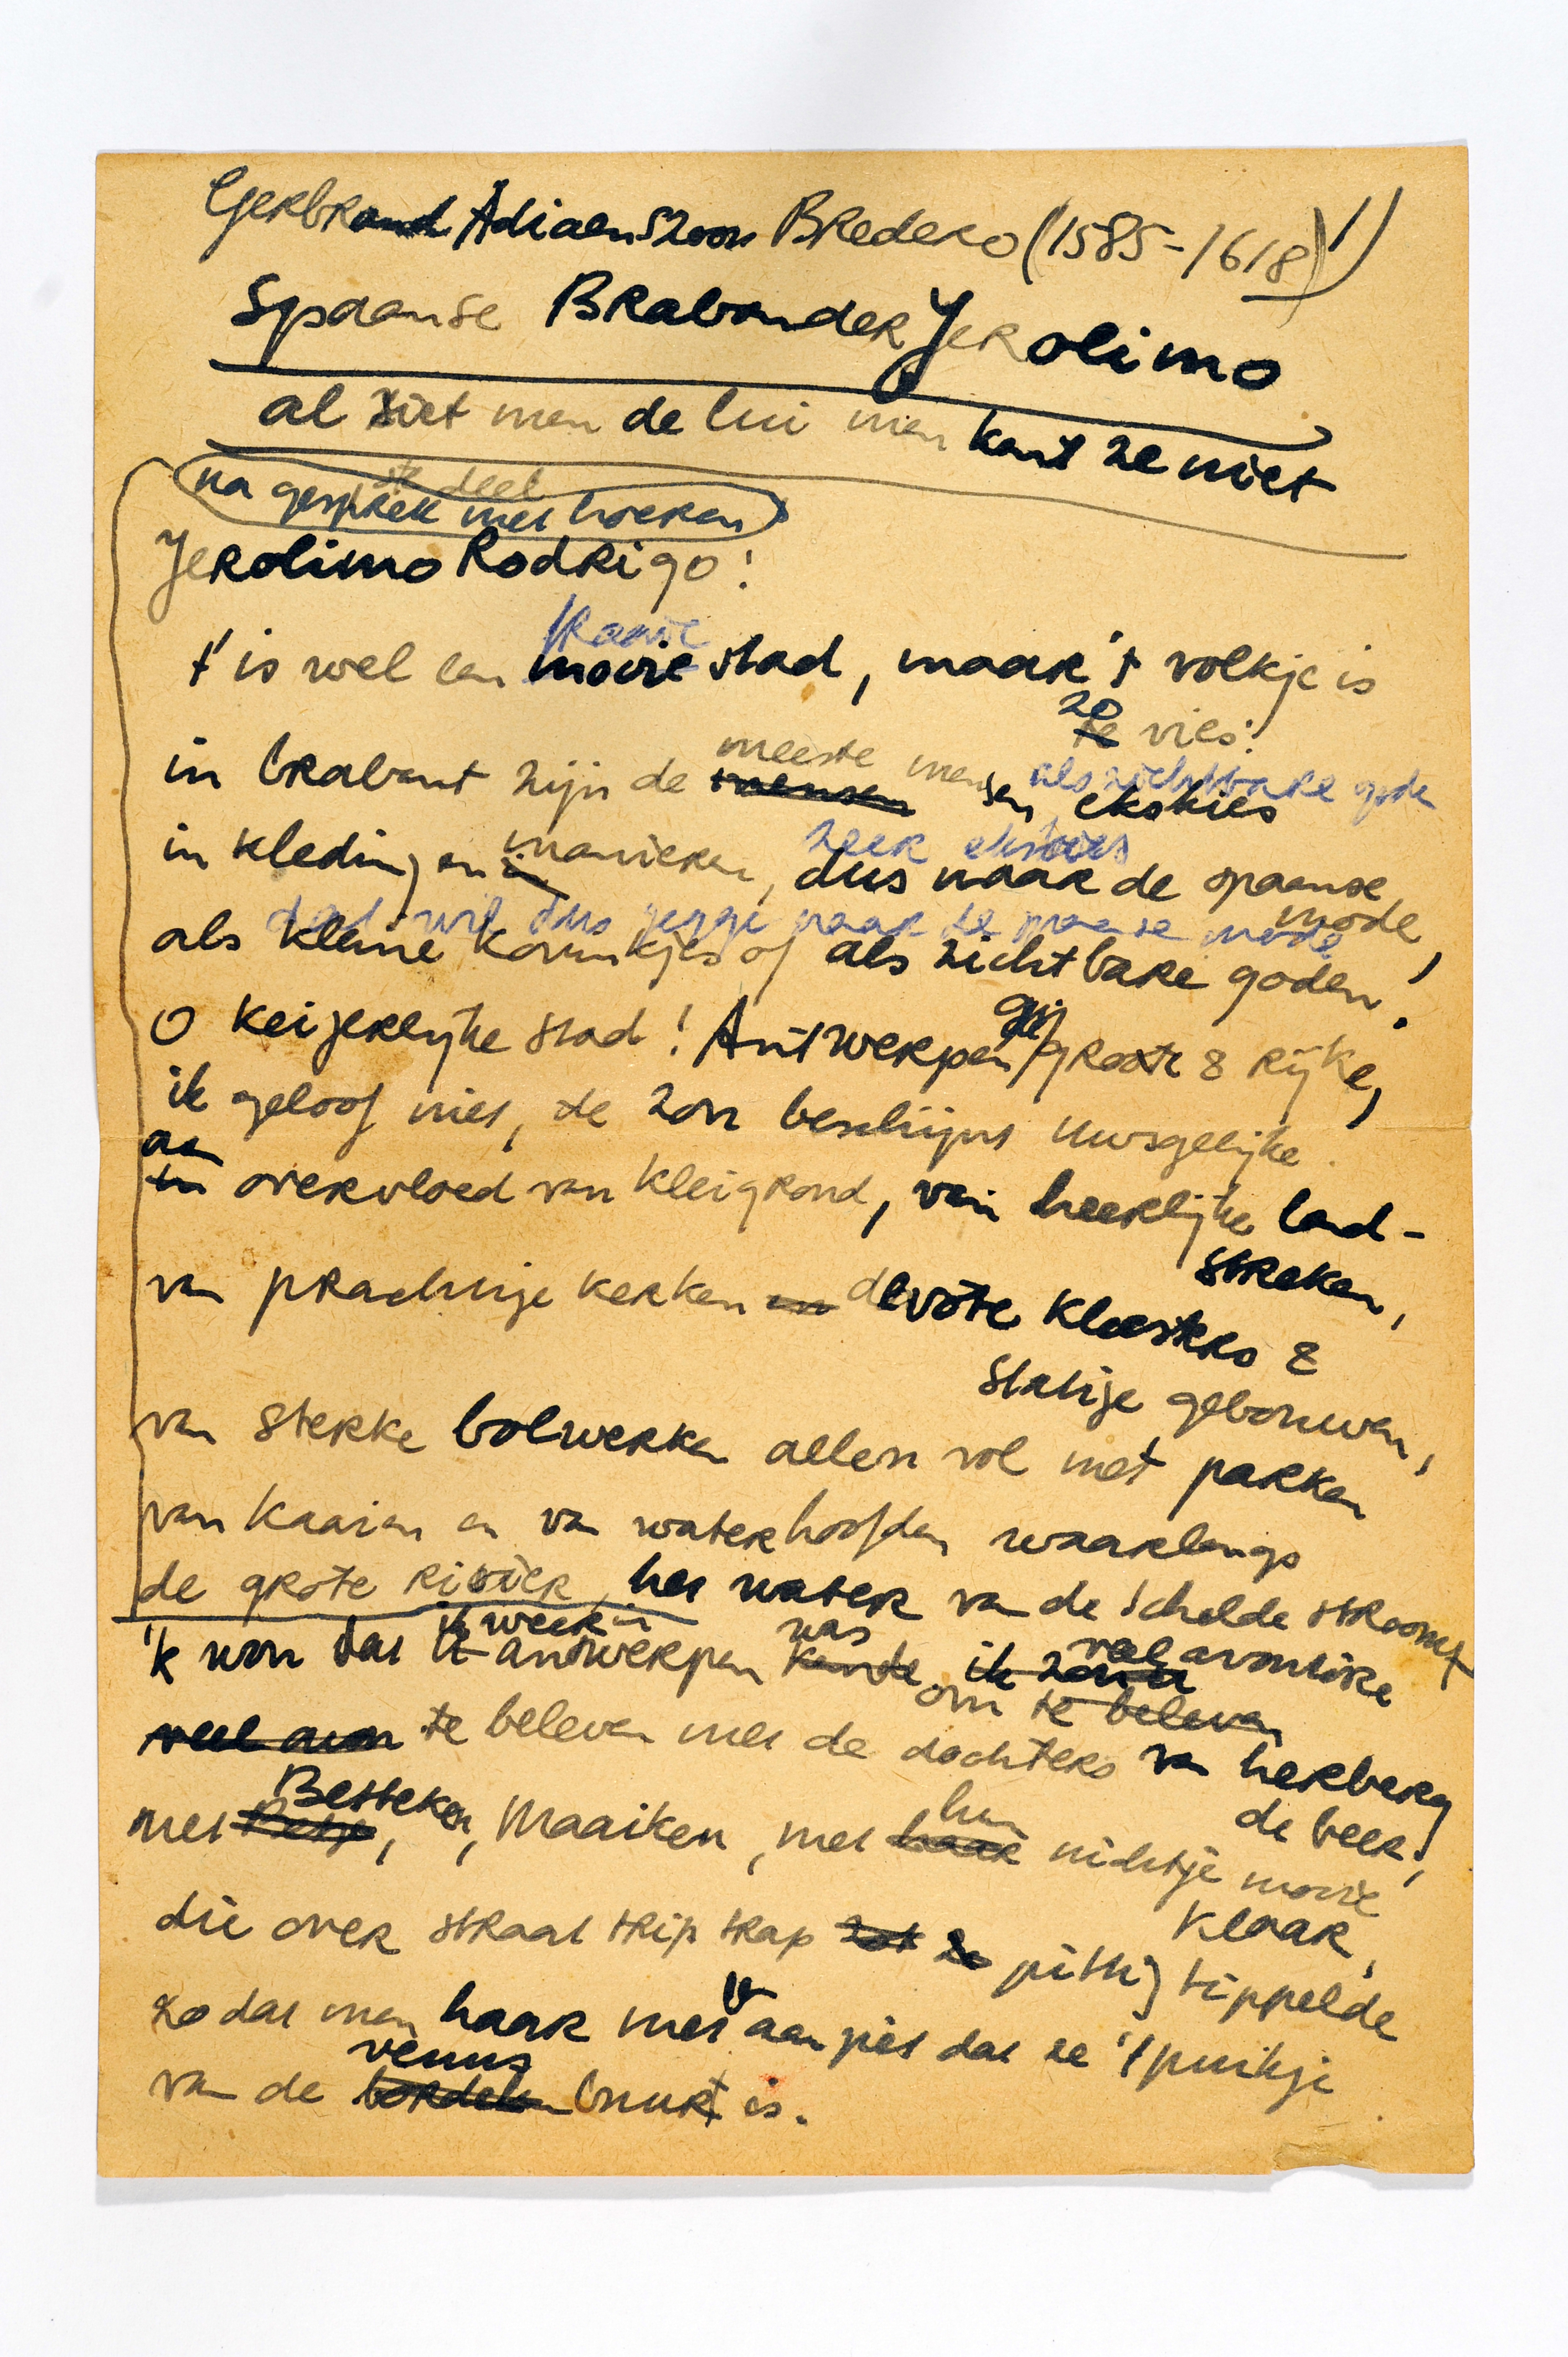 Gerbrand Adiaenszoon Bredero (1585-1618) 1)
Spaanse Brabander Jerolimo
al ziet men de lui men kent ze niet
ste deel
na gesprek met hoeren
Jerolimo Rodrigo:
fraaie
t' is wel een mooie stad, maar 't volkje is
zo
te vies:
meeste mensen als zichtbare goden
in brabant zijn de mensen ekskies
zeer ekskies
in kleding en in manieren, dus naar de spaanse mode,
dat wil dus zegge naar de spaanse mode
als kleine koninkjes of als zichtbare goden.
gij
O keizerlijke stad! Antwerpen groote & rijke,
ik geloof niet, de zon beschijnt uwsgelijke.
aan
in overvloed van kleigrond, van heerlijke land-
streken,
van prachtige kerken en devote kloosters &
statige gebouwen,
van sterke bolwerken allen vol met parken
van kaaien en van waterhoofden waarlangs
de grote rivier, het water van de schelde stroomt
ik weer in was veel avonture
'k wou dat ik antwerpen kende ik zou
om te beleven
veel avon te beleven met de dochters van herberg
de beer,
Betteken hun
met Betje, Maaiken, met haar nichtje mooie
klaar,
die over straat trip trap zat ze pittig tippelde
zodat men haar met aan piet dat ze 't puikje
venus
van de bordelen buurt is.